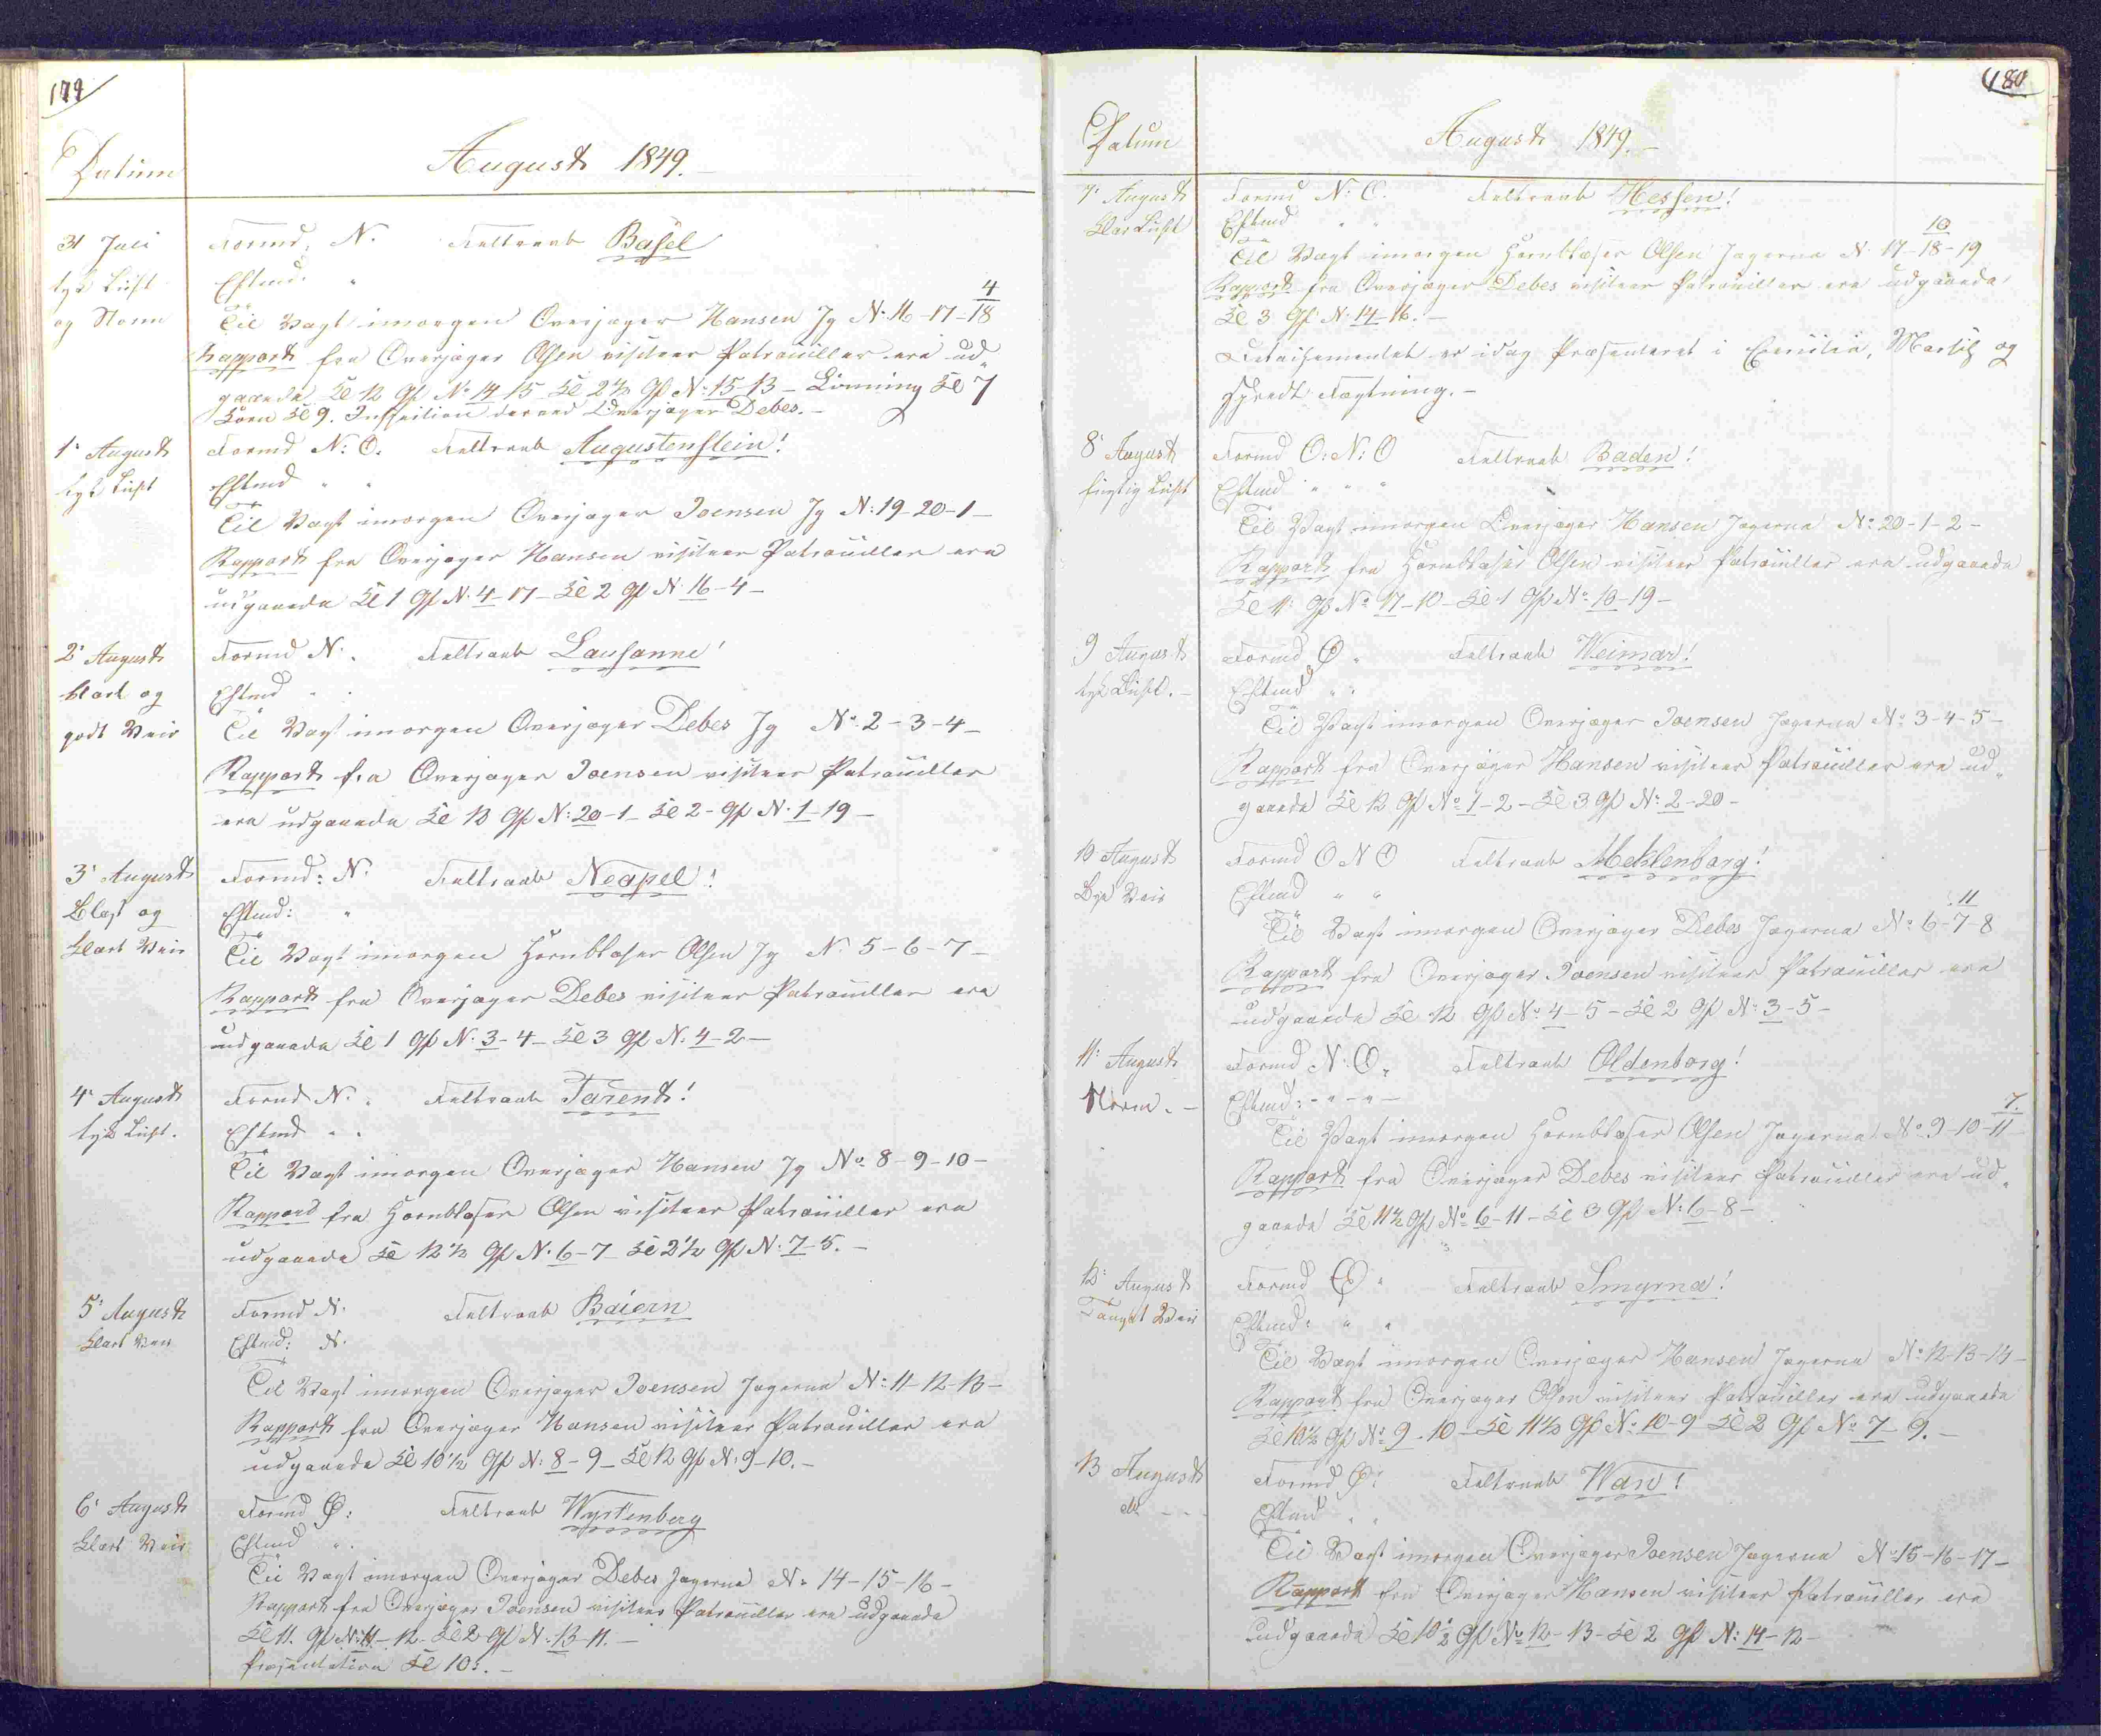 179
Datum
August 1849.
31 Juli
tyk Luft
og Storm
Formd. N. Feltraab Basel
Eftmd. "
4
Til Vagt imorgen Overjæger Hansen Jg N. 16-17-18
Rapport fra Overjæger Olsen visiteer Patrouiller ere ud
gaaede Kl 12 Gf No 14 15 Kl 2½ Gf N: 15-13 - Lönning Kl 7
Korn Kl 9. Inspection derved Overjæger Debes. -
1' August
tyk Luft
Formd N: O. Feltraab Augustenstein!
Eftmd " "
Til Vagt imorgen Overjæger Joensen Jg N: 19-20-1-
Rapport fra Overjæger Hansen visiteer Patrouiller ere
udgaaede Kl 1 Gf N. 4-17- Kl 2 Gf N 16-4-
2' August
klart og
godt Veir
Formd N. Feltraab Lausanne!
Eftmd "
Til Vagt imorgen Overjæger Debes Jg No 2-3-4-
Rapport fra Overjæger Joensen visiteer Patrouiller
ere udgaaede Kl 12 Gf N: 20-1- Kl 2- Gf N. 1-19-
3' August
Blæst og
klart Veir
Formd: N. Feltraab Neapel!
Eftmd: "
Til Vagt imorgen Hornblæser Olsen Jg N 5-6-7-
Rapport fra Overjæger Debes visiteer Patrouiller ere
udgaaede Kl 1 Gf N: 3-4- Kl 3 Gf N. 4-2-
4' August
tyk Luft.
Formd N. Feltraab Tarent!
Eftmd "
Til Vagt imorgen Overjæger Hansen Jg No 8-9-10-
Rappord fra Hornblæser Olsen visiteer Patrouiller ere
udgaaede Kl 12½ Gf N. 6-7 Kl 2½ Gf N: 7-5.-
5' August
klart Veir
Formd N. Feltraab Baiern
Eftmd: N.
Til Vagt imorgen Overjæger Joensen Jægerne N: 11-12-13-
Rapport fra Overjæger Hansen visiteer Patrouiller ere
udgaaede Kl 10½ Gf N: 8-9- Kl 12 Gf N: 9-10.-
6' August
klart Veir
Formd Ø: Feltraab Wyrtenberg
Eftmd "
Til Vagt imorgen Overjæger Debes Jægerne No 14-15-16-
Rapport fra Overjæger Joensen visiteer Patrouiller ere udgaaede
Kl 11. Gf N: 11-12- Kl 2 Gf N: 13-11.-
Præsentation Kl 10:.-
180
Datum
August 1849.-
7' August
klar Luft
Formd N: O. Feltraab Hessen!
Eftmd " "
10
Til Vagt imorgen Hornblæser Olsen Jægerne N 17-18-19
Rapport fra Overjæger Debes visiteer Patrouiller ere udgaaede
Kl 3 Gf N: 14-16.-
Detachementet er idag Præsenteret i Exersits, Marsch og
spredt Fægtning.-
8' August
fugtig Luft
Formd O: N: O Feltraab Baden!
Eftmd " " "
Til Vagt imorgen Overjæger Hansen Jægerne No 20-1-2-
Rapport fra Hornblæser Olsen visiteer Patrouiller ere udgaaede
Kl 11. Gf No 17-10- Kl 1 Gf No 10-19-
9 August
tyk Luft.-
Formd Ø. Feltraab Weimar!
Eftmd " "
Til Vagt imorgen Overjæger Joensen Jægerne No 3-4-5-
Rapport fra Overjæger Hansen visiteer Patrouiller ere ud
gaaede Kl 12 Gf No 1-2- Kl 3 Gf N: 2-20-
10 August
Bye Veir
Formd O N O Feltraab Meklenborg!
Eftmd " "
11
Til Vagt imorgen Overjæger Debes Jægerne No 6-7-8
Rapport fra Overjæger Joensen visiteer Patrouiller ere
udgaaede Kl 12 Gf No 4-5- Kl 2 Gf N: 3-5-
11' August
Storm.-
Formd N: O. Feltraab Oldenborg!
Eftmd: - " - " -
7.
Til Vagt imorgen Hornblæser Olsen Jægerne No 9-10-11
Rapport fra Overjæger Debes visiteer Patrouiller ere ud
gaaede Kl 11½ Gf No 6-11- Kl 3 Gf N: 6-8-
12' August
Taaget Veir
Formd Ø. Feltraab Smyrna!
Eftmd: " "
Til Vagt imorgen Overjæger Hansen Jægerne No 12-13-14-
Rapport fra Overjæger Olsen visiteer Patrouiller ere udgaaede
Kl 10½ Gf No 9-10- Kl 11½ Gf No 10-9 Kl 2 Gf No 7-9.-
13 August
do - - -
Formd Ø: Feltraab Wan!
Eftmd " "
Til Vagt imorgen Overjæger Joensen Jægerne No 15-16-17-
Rapport fra Overjæger Hansen visiteer Patrouiller ere
udgaaede Kl 10½ Gf No 12-13- Kl 2 Gf N: 14-12-